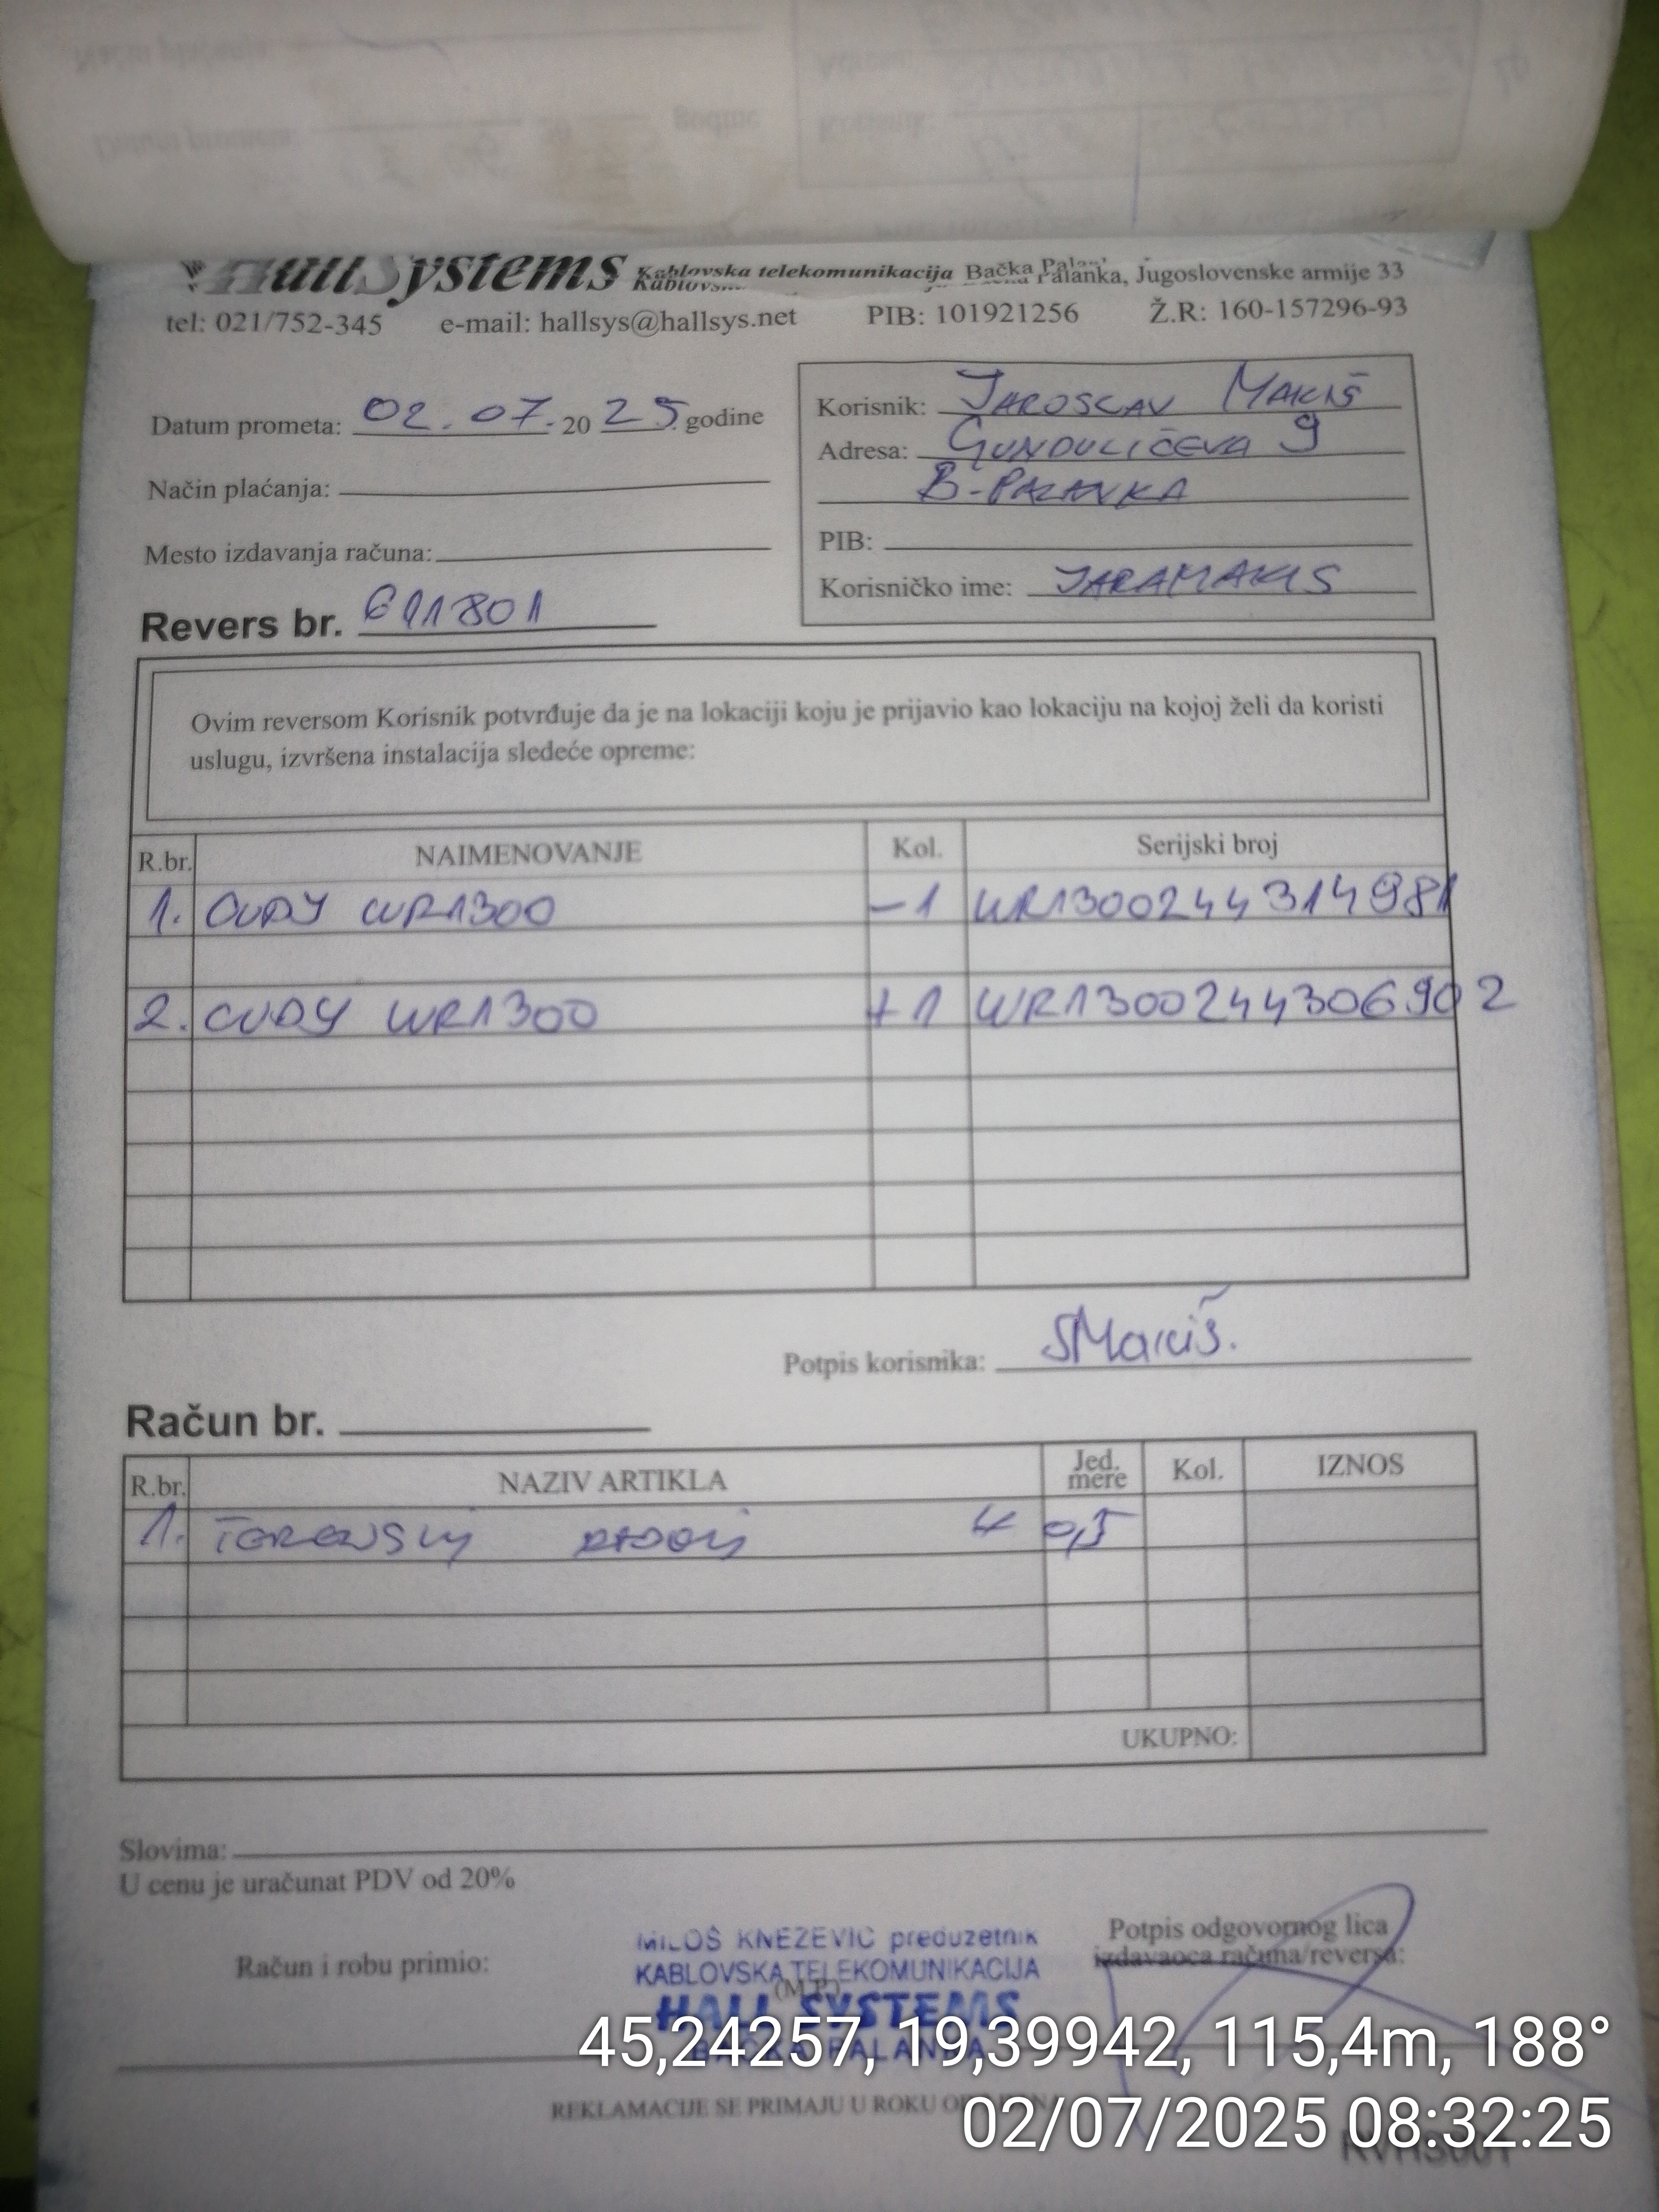 HallSystems Kablovska telekomunikacija Bačka Palanka, Jugoslovenske armije 33
tel: 021/752-345 e-mail: hallsys@hallsys.net PIB: 101921256 Ž.R: 160-157296-93
Datum prometa: 02.07.2025 godine
Način plaćanja:
Mesto izdavanja računa:
Revers br. 691801
Korisnik: JAROSLAV MAKIŠ
Adresa: GUNDULIĆEVA 9
B-PALANKA
PIB:
Korisničko ime: JARAMAKIS
Ovim reversom Korisnik potvrđuje da je na lokaciji koju je prijavio kao lokaciju na kojoj želi da koristi
uslugu, izvršena instalacija sledeće opreme:
R.br. NAIMENOVANJE Kol. Serijski broj
1. CUDY WR1300 -1 WR1300244314981
2. CUDY WR1300 +1 WR1300244306902
Potpis korisnika: SMakiš.
Račun br.
R.br. NAZIV ARTIKLA Jed. mere Kol. IZNOS
1. TERENSKI 0,5
UKUPNO:
Slovima:
U cenu je uračunat PDV od 20%
Račun i robu primio:
MILOŠ KNEŽEVIĆ preduzetnik
KABLOVSKA TELEKOMUNIKACIJA
(M.P.)
HALL SYSTEMS
BAČKA PALANKA
Potpis odgovornog lica
izdavaoca računa/reversa:
REKLAMACIJE SE PRIMAJU U ROKU OD
45,24257, 19,39942, 115,4m, 188°
02/07/2025 08:32:25